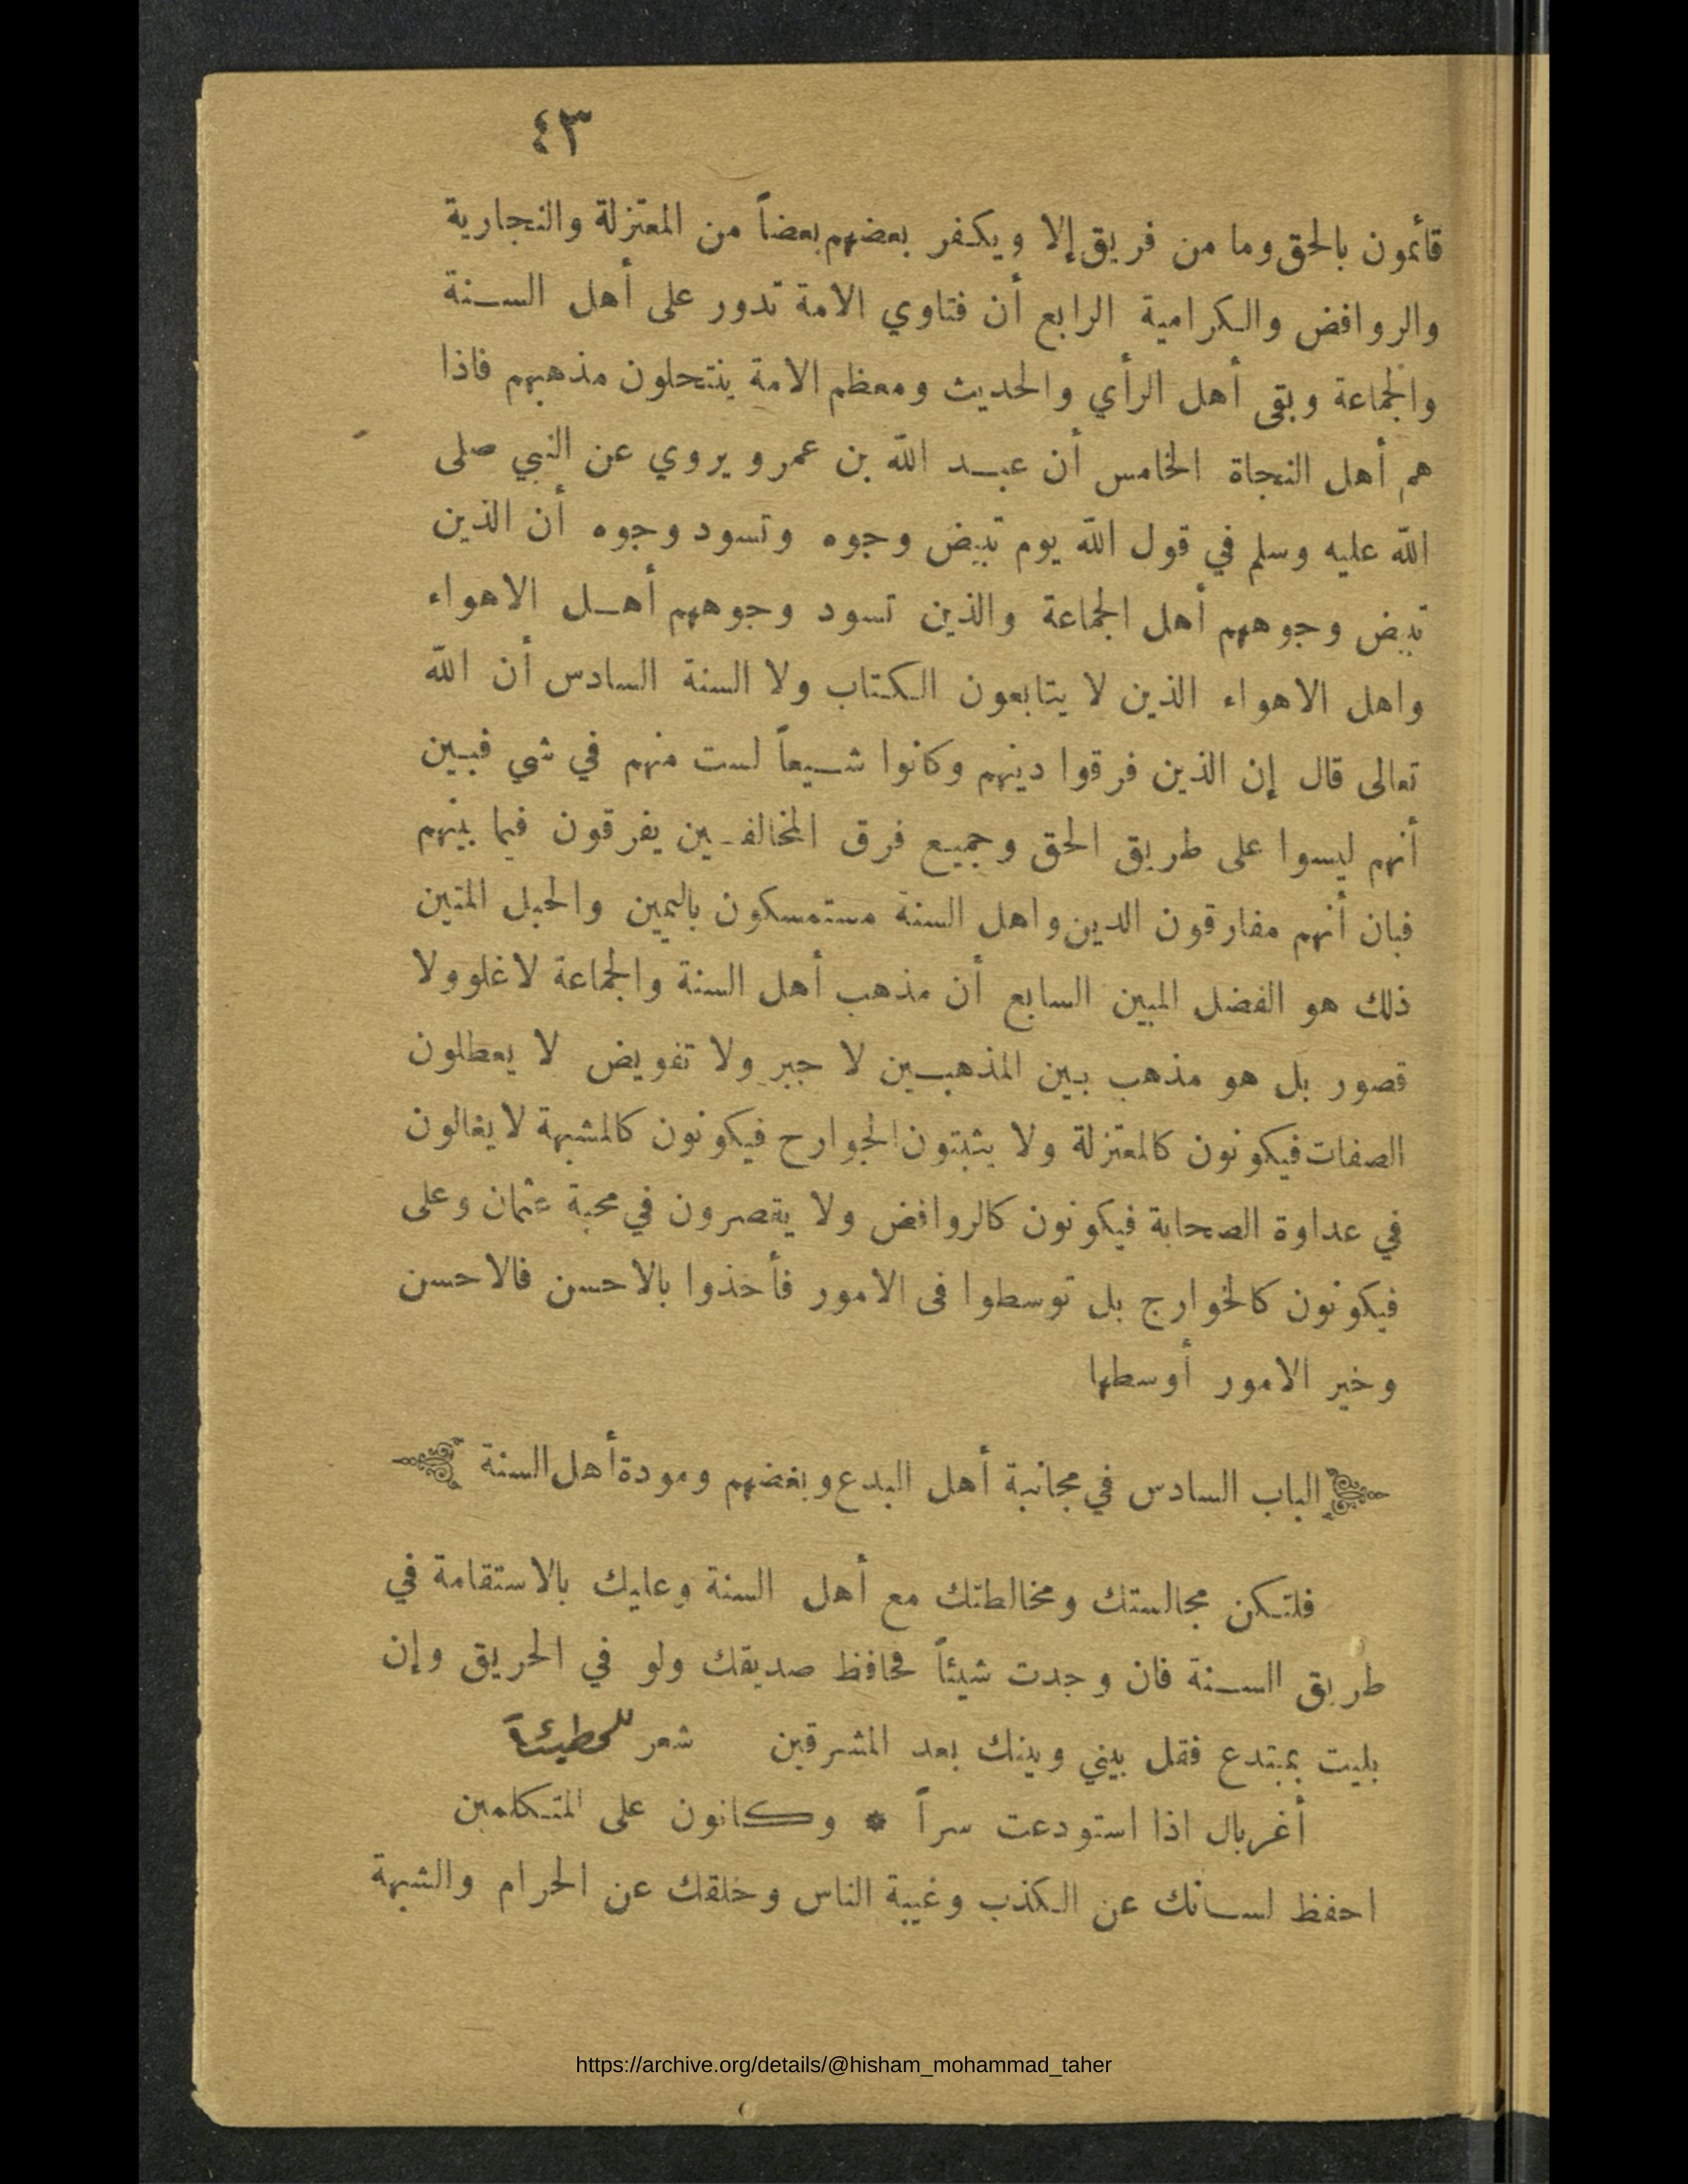 ٤٣
قائمون بالحق وما من فريق إلا ويكفر بعضهم بعضاً من المعتزلة والنجارية
والروافض والكرامية الرابع أن فتاوي الامة تدور على أهل السنة
والجماعة وبقى أهل الرأي والحديث ومعظم الامة ينتحلون مذهبهم فاذا
هم أهل النجاة الخامس أن عبد الله بن عمرو يروي عن النبي صلى
الله عليه وسلم في قول الله يوم تبيض وجوه وتسود وجوه أن الذين
تبيض وجوههم أهل الجماعة والذين تسود وجوههم أهل الاهواء
واهل الاهواء الذين لا يتابعون الكتاب ولا السنة السادس أن الله
تعالى قال إن الذين فرقوا دينهم وكانوا شيعاً لست منهم في شي فبين
أنهم ليسوا على طريق الحق وجميع فرق المخالفين يفرقون فيما بينهم
فبان أنهم مفارقون الدين واهل السنة مستمسكون باليمين والحبل المتين
ذلك هو الفضل المبين السابع أن مذهب أهل السنة والجماعة لا غلو ولا
قصور بل هو مذهب بين المذهبين لا جبر ولا تفويض لا يعطلون
الصفات فيكونون كالمعتزلة ولا يثبتون الجوارح فيكونون كالمشبهة لا يغالون
في عداوة الصحابة فيكونون كالروافض ولا يقصرون في محبة عثمان وعلى
فيكونون كالخوارج بل توسطوا فى الامور فأخذوا بالاحسن فالاحسن
وخير الامور أوسطها
الباب السادس في مجانبة أهل البدع وبغضهم ومودة أهل السنة
فلتكن مجالستك ومخالطتك مع أهل السنة وعليك بالاستقامة في
طريق السنة فان وجدت شيئاً فحافظ صديقك ولو في الحريق وإن
بليت بمبتدع فقل بيني وبينك بعد المشرقين شعر للحطيئة
أغربال اذا استودعت سراً * وكانون على المتكلمين
احفظ لسانك عن الكذب وغيبة الناس وخلقك عن الحرام والشبهة
https://archive.org/details/@hisham_mohammad_taher